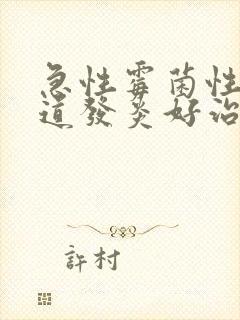 急性霉菌性
道發炎好治
許村